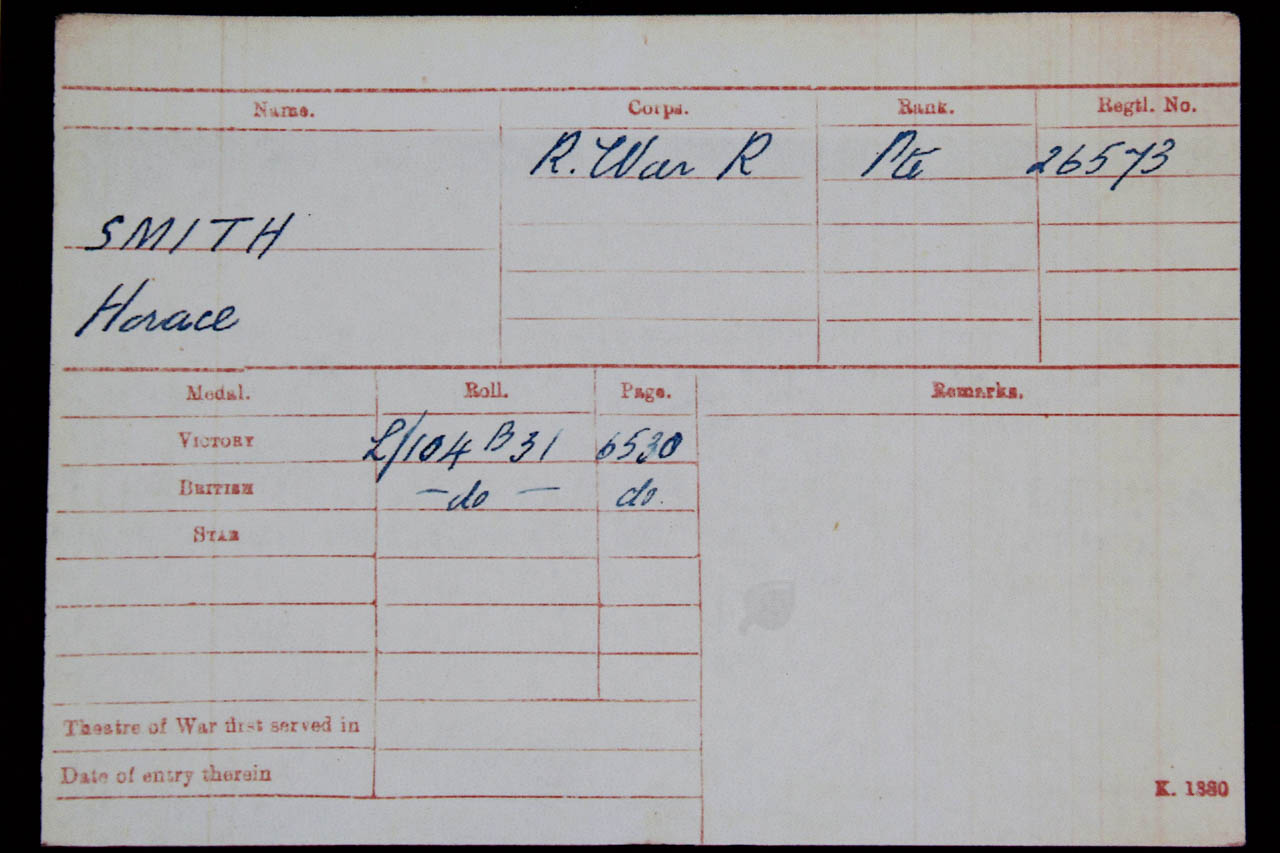 Name. Corps. Rank. Regtl. No.
R. War R Pte 26573
SMITH
Horace
Medal. Roll. Page. Remarks.
VICTORY L/104 B31 6530
BRITISH – do – do.
STAR
Theatre of War first served in
Date of entry therein
K. 1380